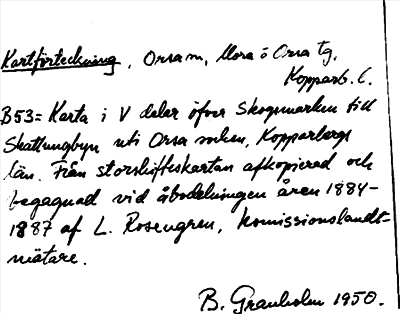 Kartförteckning, Orsa m, Mora o Orsa tg,
Kopparb. l.
B53 = Karta i V delar öfver Skogsmarken till
Skattungbyn uti Orsa socken, Kopparbergs
län. Från storskifteskartan afkopierad och
begagnad vid åbodelningen åren 1884-
1887 af L. Rosengren, Komissionslandt-
mätare.
B. Granholm 1950.